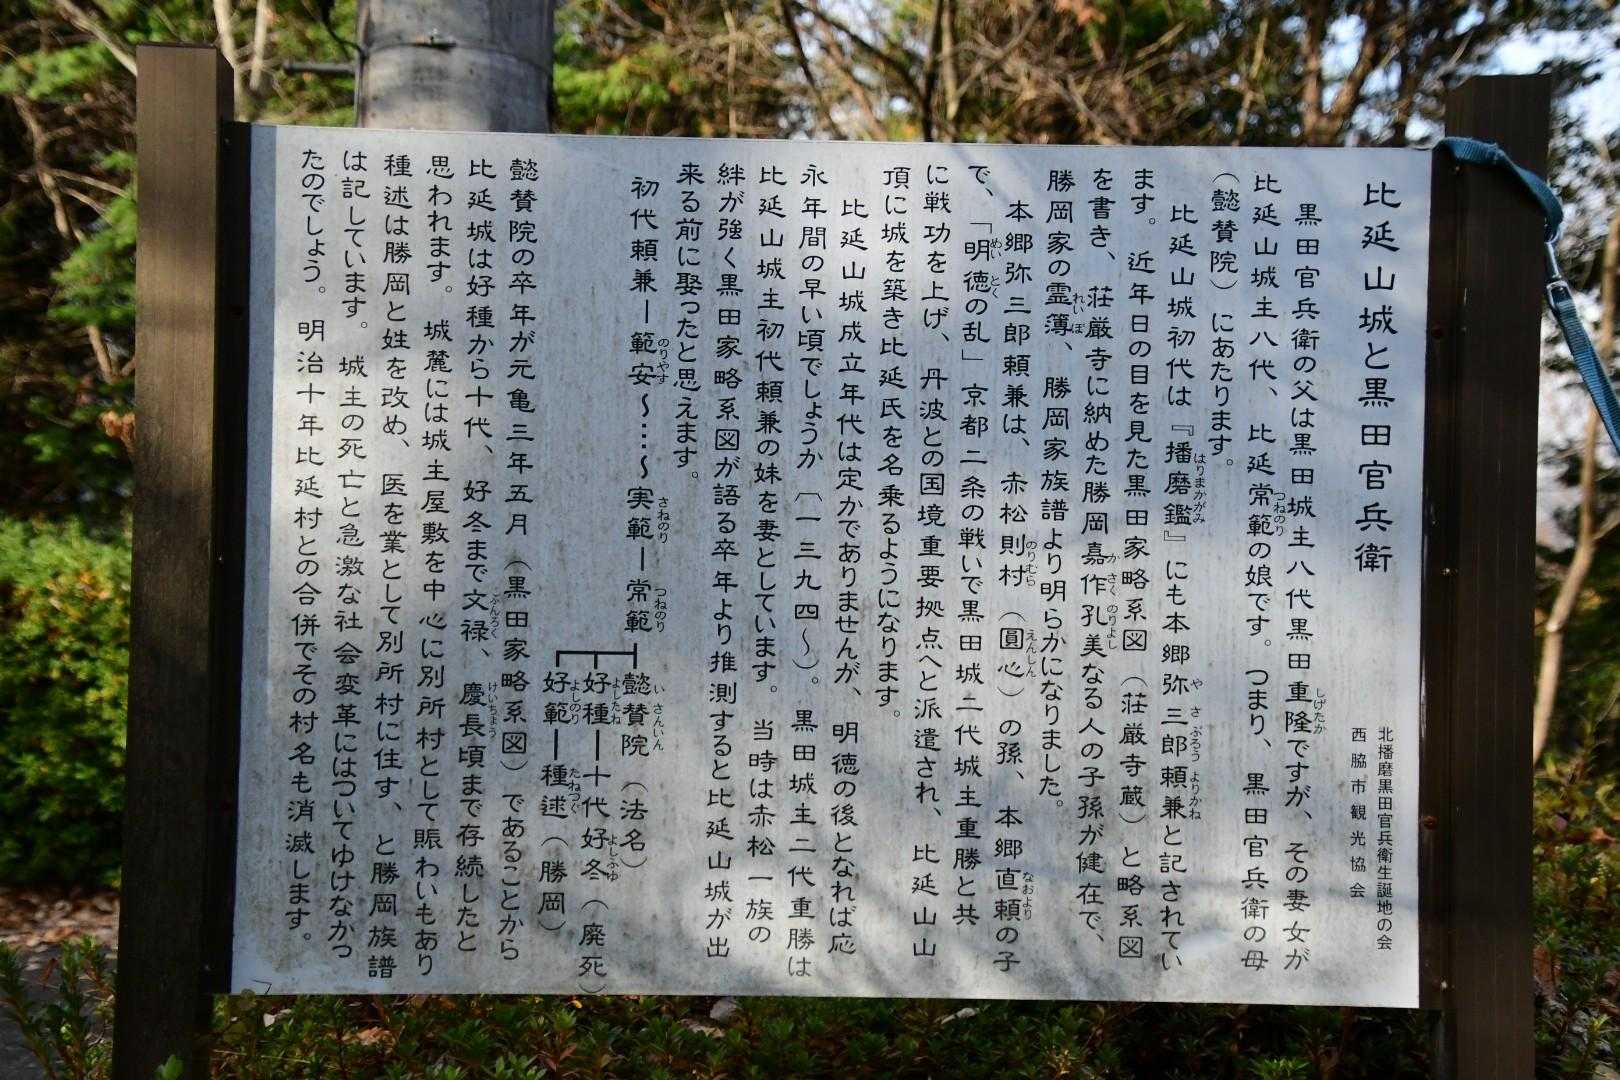 比延山城と黒田官兵衛
北播磨黒田官兵衛生誕地の会
西脇市観光協会
黒田官兵衛の父は黒田城主八代黒田重隆ですが、その妻女が
比延山城主八代、比延常範の娘です。つまり、黒田官兵衛の母
（懿賛院）にあたります。
比延山城初代は『播磨鑑』にも本郷弥三郎頼兼と記されてい
ます。近年日の目を見た黒田家略系図（荘厳寺蔵）と略系図
を書き、荘厳寺に納めた勝岡嘉作孔美なる人の子孫が健在で、
勝岡家の霊簿、勝岡家族譜より明らかになりました。
本郷弥三郎頼兼は、赤松則村（圓心）の孫、本郷直頼の子
で、「明徳の乱」京都二条の戦いで黒田城二代城主重勝と共
に戦功を上げ、丹波との国境重要拠点へと派遣され、比延山山
頂に城を築き比延氏を名乗るようになります。
比延山城成立年代は定かでありませんが、明徳の後となれば応
永年間の早い頃でしょうか〔一三九四～〕。黒田城主二代重勝は
比延山城主初代頼兼の妹を妻としています。当時は赤松一族の
絆が強く黒田家略系図が語る卒年より推測すると比延山城が出
来る前に娶ったと思えます。
初代頼兼―範安～…～実範―常範
懿賛院（法名）
好種―十代好冬（廃死）
好範―種述（勝岡）
懿賛院の卒年が元亀三年五月（黒田家略系図）であることから
比延城は好種から十代、好冬まで文禄、慶長頃まで存続したと
思われます。城麓には城主屋敷を中心に別所村として賑わいもあり
種述は勝岡と姓を改め、医を業として別所村に住す、と勝岡族譜
は記しています。城主の死亡と急激な社会変革にはついてゆけなかっ
たのでしょう。明治十年比延村との合併でその村名も消滅します。